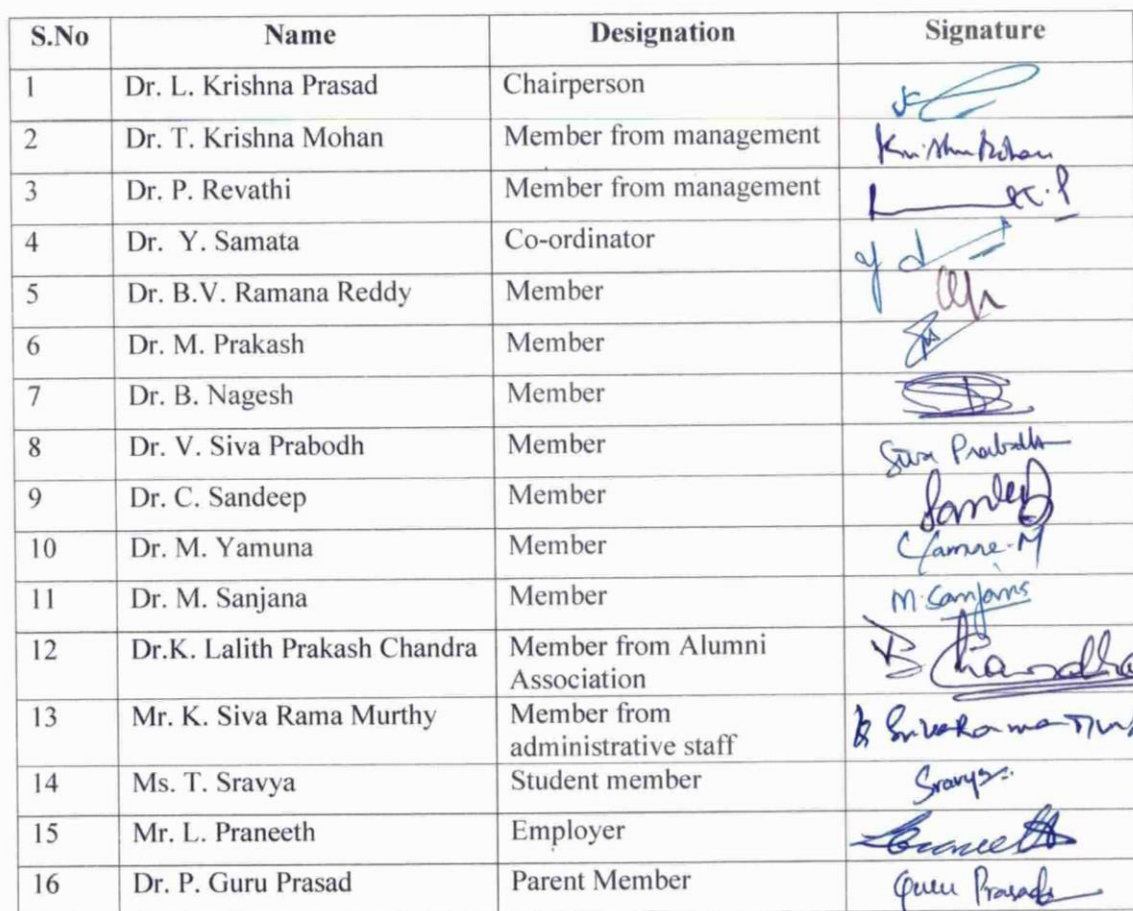 S.No Name Designation Signature
1 Dr. L. Krishna Prasad Chairperson
2 Dr. T. Krishna Mohan Member from management Krishna Mohan
3 Dr. P. Revathi Member from management
4 Dr. Y. Samata Co-ordinator
5 Dr. B.V. Ramana Reddy Member
6 Dr. M. Prakash Member
7 Dr. B. Nagesh Member
8 Dr. V. Siva Prabodh Member Siva Prabodh
9 Dr. C. Sandeep Member Sandeep
10 Dr. M. Yamuna Member
11 Dr. M. Sanjana Member M. Sanjana
12 Dr.K. Lalith Prakash Chandra Member from Alumni
Association
13 Mr. K. Siva Rama Murthy Member from
administrative staff
14 Ms. T. Sravya Student member Sravya
15 Mr. L. Praneeth Employer Praneeth
16 Dr. P. Guru Prasad Parent Member Guru Prasad